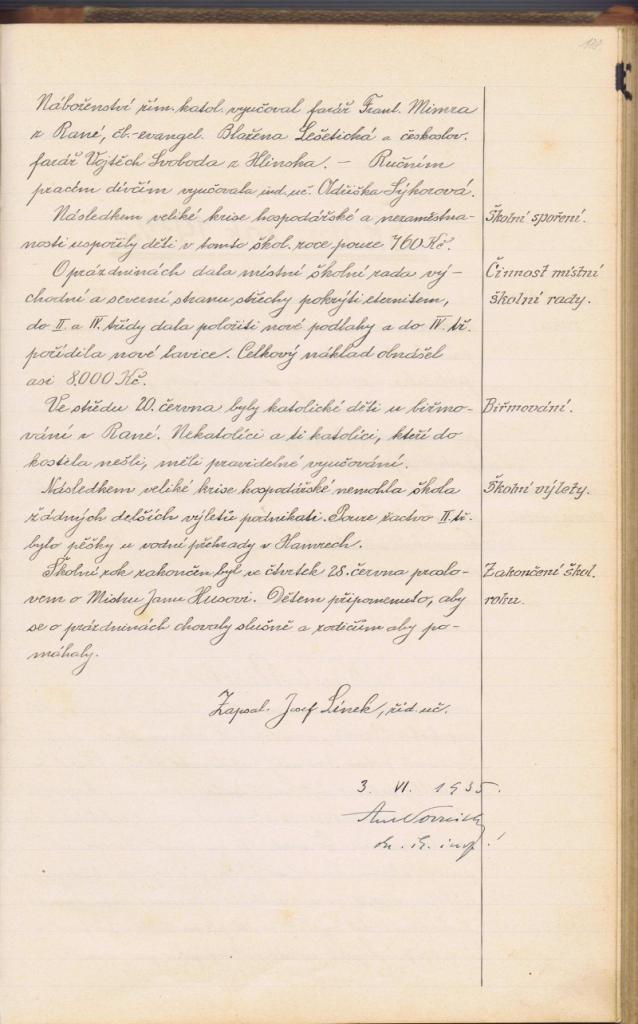 Náboženství řím. katol. vyučoval farář Frant. Mimra
z Rané, čb.-evangel. Blažena Lešetická a českoslov.
farář Vojtěch Svoboda z Hlinska. — Ručním
pracém dívčím vyučovala ind. uč. Oldřiška Sýkorová.
Následkem veliké krise hospodářské a nezaměstna-
Školní spoření.
nosti uspořily děti v tomto škol. roce pouze 760 Kč.
O prázdninách dala místní školní rada vý-
Činnost místní
chodní a severní stranu střechy pokrýti eternitem,
školní rady.
do II. a IV. třídy dala položiti nové podlahy a do IV. tř.
pořídila nové lavice. Celkový náklad obnášel
asi 8.000 Kč.
Ve středu 20. června byly katolické děti u biřmo-
Biřmování.
vání v Rané. Nekatolíci a ti katolíci, kteří do
kostela nešli, měli pravidelné vyučování.
Následkem veliké krise hospodářské nemohla škola
Školní výlety.
žádných delších výletů podnikati. Pouze žactvo II. tř.
bylo pěšky u vodní přehrady v Hamrech.
Školní rok zakončen byl ve čtvrtek 28. června proslo-
Zakončení škol.
vem o Mistru Janu Husovi. Dětem připomenuto, aby
roku.
se o prázdninách chovaly slušně a rodičům aby po-
máhaly.
Zapsal. Josef Línek, říd. uč.
3. VI. 1935.